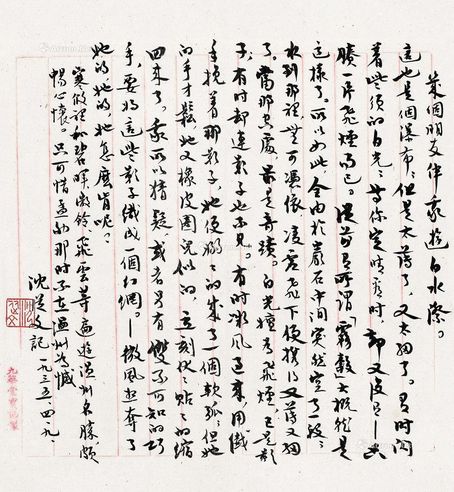 幾個朋友伴我遊白水漈。
這也是個瀑布,但是太薄了,又太細了。有時閃
着些須的白光;等你定睛看時,却又沒有——只
賸一片飛煙而已。從前有所謂「霧縠」大概就是
這樣了。所以如此,全由於巖石中間突然空了一段;
水到那裡,無可憑依,凌虛飛下便扯得又薄又細
了。當那空處,最是奇蹟。白光嬗為飛煙,已是影
子;有時却連影子也不見。有時微風過來,用纖
手挽着那影子,她便嫋嫋的成了一個軟弧;但她
的手才鬆,她又像橡皮圈兒似的,立刻伏伏貼貼的縮
回來了。我所以猜疑或者另有雙不可知的巧
手要將這些影子織成一個幻網。——微風想奪了
她的她的,她怎麼肯呢。
寒假裡和碧暉微鈴飛雲等遍遊溫州名勝,頗
暢心懷。只可惜那時不在溫州為憾
沈文記 一九三五・四・九